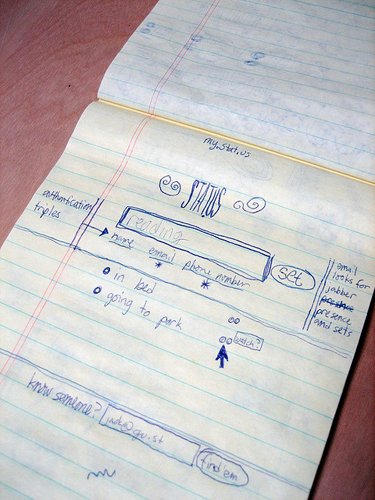 my.stat.us
STATUS
authentication
triples
reading
set
name email phone number
in bed
going to park
watch?
email
looks for
jabber
presence
and sets
know someone?
find 'em